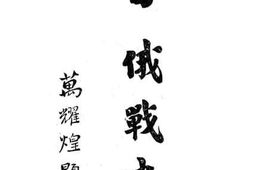 俄戰
萬耀煌題